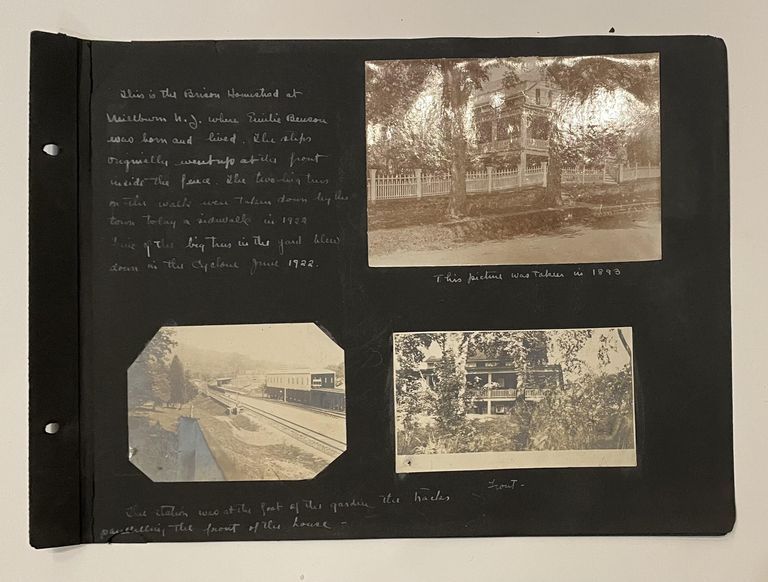 This is the Brison Homestead at
Millburn N.J. where Emilie Benson
was born and lived. The steps
originally went up at the front
inside the fence. The two big trees
on the walk were taken down by the
town to lay a sidewalk in 1922
of the big trees in the yard blew
down in the Cyclone June 1922.
This picture was taken in 1893
Front -
The station was at the foot of the garden the tracks
paralelling the front of the house -